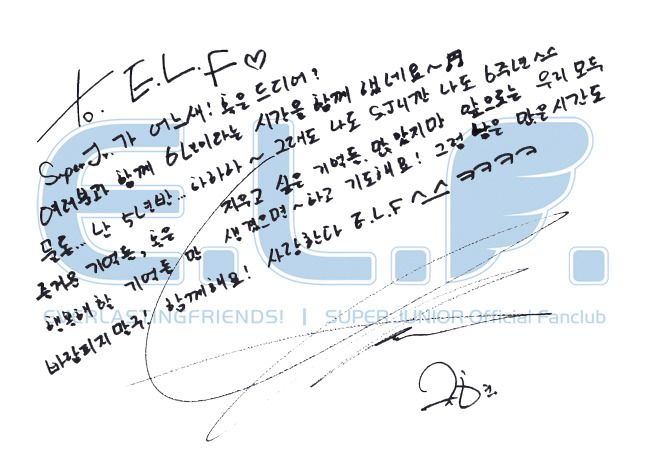 to. E.L.F ♡
Super Jr. 가 어느새! 혹은 드디어?
여러분과 함께 6년이라는 시간을 함께 했네요~♬
물론.. 난 5년반... 아하하~ 그래도 나도 SJ니깐 나도 6주년ㅅㅅ
즐거운 기억들, 혹은 지우고 싶은 기억들. 많았지만 앞으로는 우리 모두
행복해 한 기억들만 생겼으면~하고 기도해요! 그럼 남은 많은시간도
바람피지말구! 함께해요! 사랑한다 E.L.F ^^ ㅋㅋㅋㅋ
E.L.F.
EVERLASTINGFRIENDS! | SUPER JUNIOR Official Fanclub